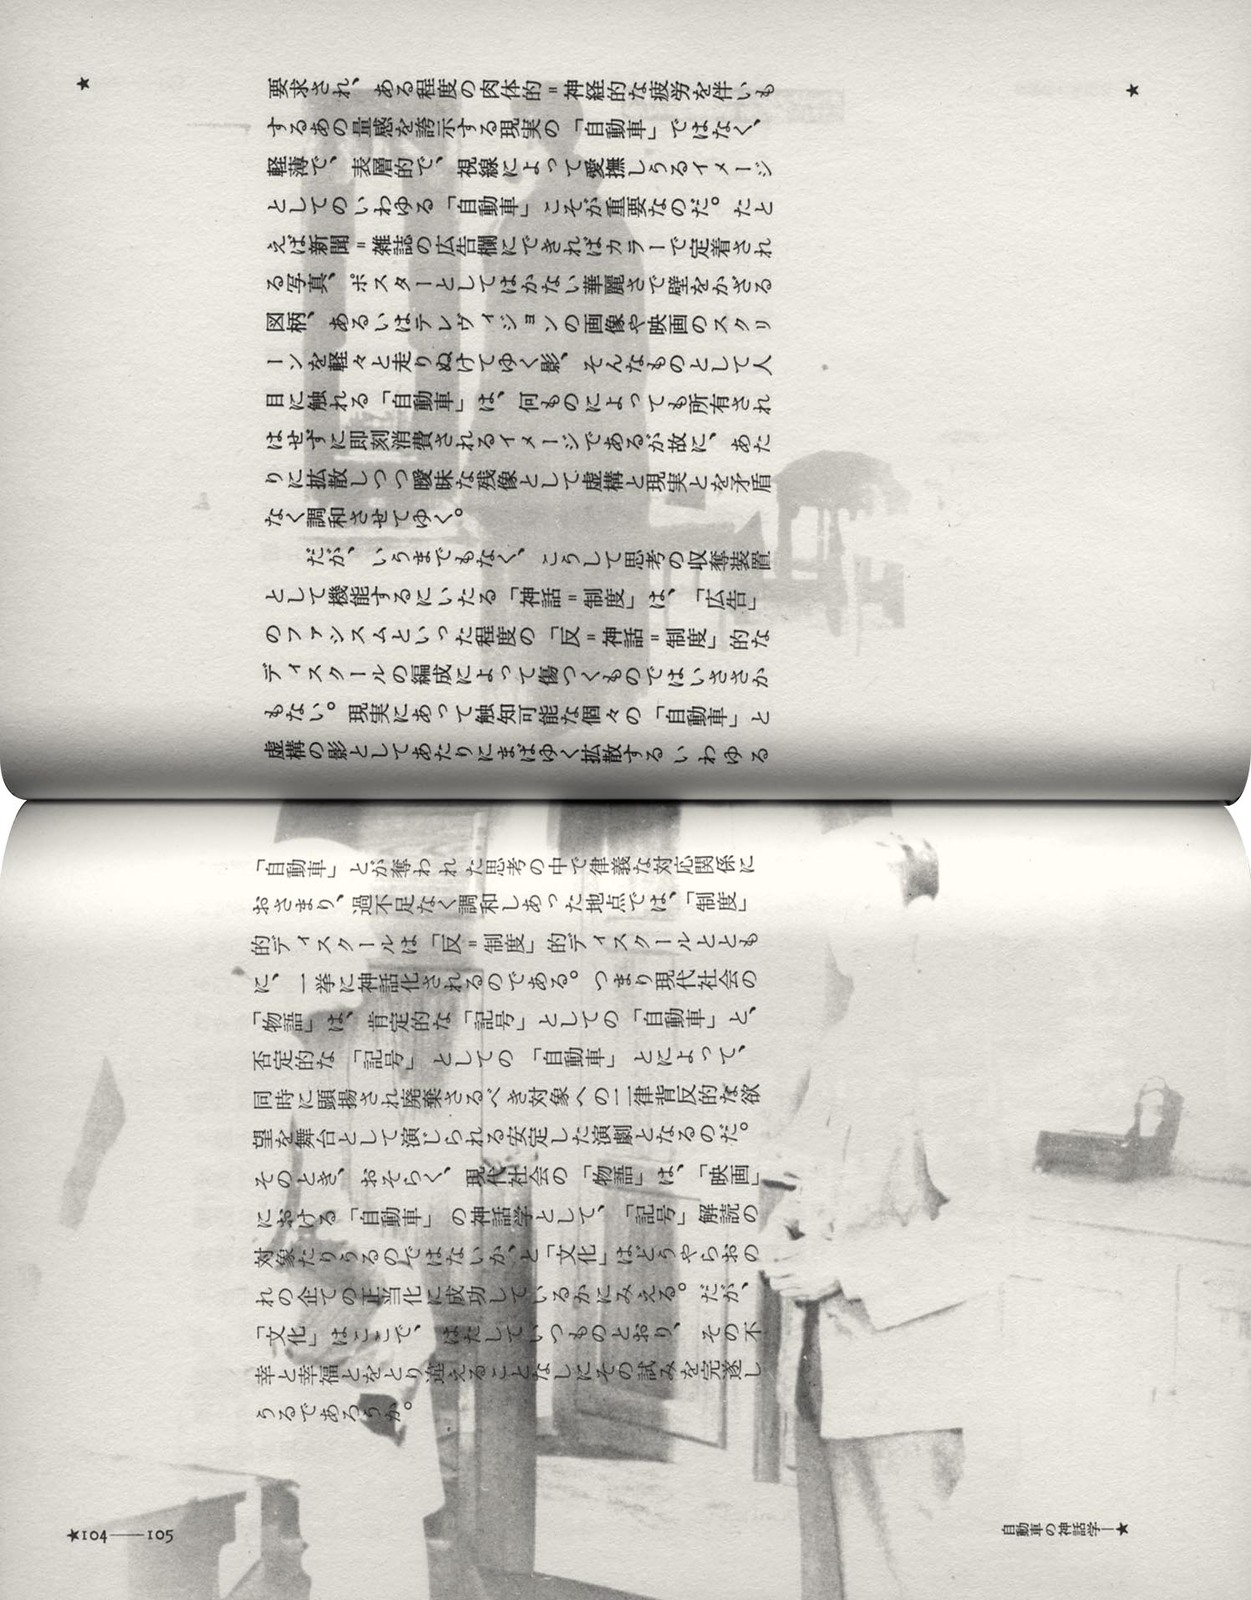 要求され、ある程度の肉体的＝神経的な疲労を伴いも
するあの量感を誇示する現実の「自動車」ではなく、
軽薄で、表層的で、視線によって愛撫しうるイメージ
としてのいわゆる「自動車」こそが重要なのだ。たと
えば新聞＝雑誌の広告欄にできればカラーで定着され
る写真、ポスターとしてはかない華麗さで壁をかざる
図柄、あるいはテレヴィジョンの画像や映画のスクリ
ーンを軽々と走りぬけてゆく影、そんなものとして人
目に触れる「自動車」は、何ものによっても所有され
はせずに即刻消費されるイメージであるが故に、あた
りに拡散しつつ曖昧な残像として虚構と現実とを矛盾
なく調和させてゆく。
だが、いうまでもなく、こうして思考の収奪装置
として機能するにいたる「神話＝制度」は、「広告」
のファシズムといった程度の「反＝神話＝制度」的な
ディスクールの編成によって傷つくものではいささか
もない。現実にあって触知可能な個々の「自動車」と
虚構の影としてあたりにまばゆく拡散するいわゆる
「自動車」とが奪われた思考の中で律義な対応関係に
おさまり、過不足なく調和しあった地点では、「制度」
的ディスクールは「反＝制度」的ディスクールととも
に、一挙に神話化されるのである。つまり現代社会の
「物語」は、肯定的な「記号」としての「自動車」と、
否定的な「記号」としての「自動車」とによって、
同時に顕揚され廃棄さるべき対象への二律背反的な欲
望を舞台として演じられる安定した演劇となるのだ。
そのとき、おそらく、現代社会の「物語」は、「映画」
における「自動車」の神話学として、「記号」解読の
対象たりうるのではないか、と「文化」はどうやらおの
れの企ての正当化に成功しているかにみえる。だが、
「文化」はここで、はたしていつものとおり、その不
幸と幸福とをとり違えることなしにその試みを完遂し
うるであろうか。
★104——105
自動車の神話学—★